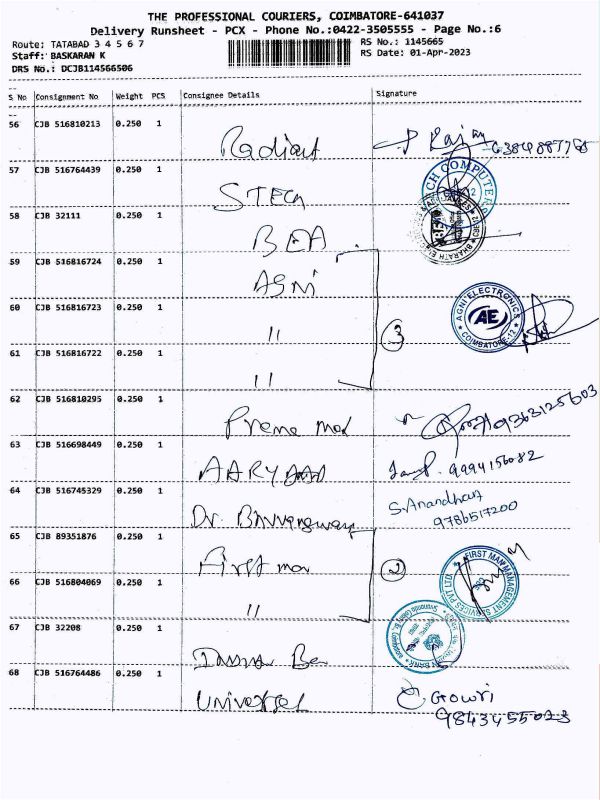 THE PROFESSIONAL COURIERS, COIMBATORE-641037
Delivery Runsheet - PCX - Phone No.:0422-3505555 - Page No.:6
Route: TATABAD 3 4 5 6 7
RS No.: 1145665
Staff: BASKARAN K
RS Date: 01-Apr-2023
DRS No.: DCJB114566506
S No Consignment No Weight PCS Consignee Details Signature
56 CJB 516810213 0.250 1 Radiant
57 CJB 516764439 0.250 1 STECH
58 CJB 32111 0.250 1 BEA
59 CJB 516816724 0.250 1 AGNI
60 CJB 516816723 0.250 1 " 3 AGNI ELECTRONICS AE COIMBATORE-12
61 CJB 516816722 0.250 1 "
62 CJB 516810295 0.250 1 9363125603
63 CJB 516698449 0.250 1 9994156082
64 CJB 516745329 0.250 1 Dr. S.Anandhan
9786517200
65 CJB 89351876 0.250 1 First man 2 FIRST MAN MANAGEMENT SERVICES PVT LTD
66 CJB 516804069 0.250 1 "
67 CJB 32208 0.250 1
68 CJB 516764486 0.250 1 Universal Gowri
9843455023